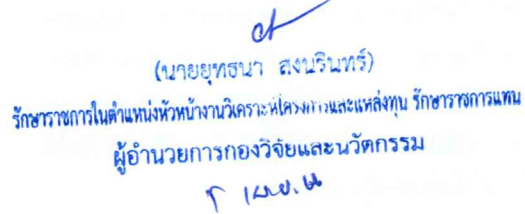 (นายยุทธนา สงนรินทร์)
รักษาราชการในตำแหน่งหัวหน้างานวิเคราะห์โครงการและแหล่งทุน รักษาราชการแทน
ผู้อำนวยการกองวิจัยและนวัตกรรม
เม.ย.